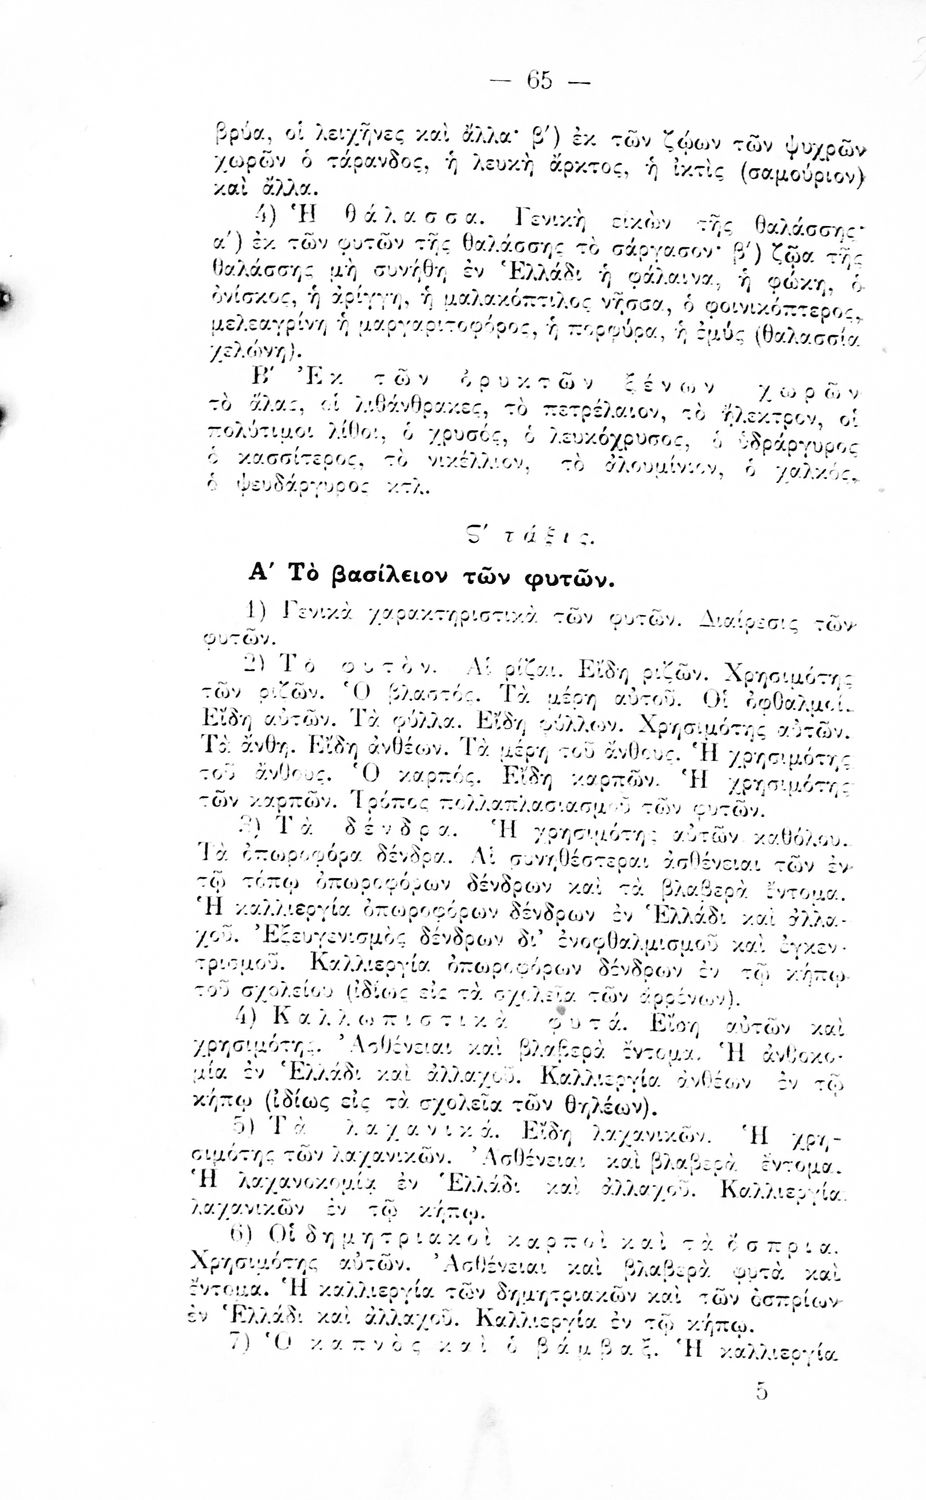 — 65 —
βρύα, οἱ λειχῆνες καὶ ἄλλα· β′) ἐκ τῶν ζῴων τῶν ψυχρῶν
χωρῶν ὁ τάρανδος, ἡ λευκὴ ἄρκτος, ἡ ἰκτὶς (σαμούριον)
καὶ ἄλλα.
4) Ἡ θάλασσα. Γενικὴ εἰκὼν τῆς θαλάσσης·
α′) ἐκ τῶν φυτῶν τῆς θαλάσσης τὸ σάργασον· β′) ζῷα τῆς
θαλάσσης μὴ συνήθη ἐν Ἑλλάδι ἡ φάλαινα, ἡ φώκη, ὁ
ὀνίσκος, ἡ ἀρίγγη, ἡ μαλακόπτιλος νῆσσα, ὁ φοινικόπτερος,
μελεαγρίνη ἡ μαργαριτοφόρος, ἡ πορφύρα, ἡ ἐμύς (θαλασσία
χελώνη).
Β′ Ἐκ τῶν ὀρυκτῶν ξένων χωρῶν
τὸ ἅλας, οἱ λιθάνθρακες, τὸ πετρέλαιον, τὸ ἤλεκτρον, οἱ
πολύτιμοι λίθοι, ὁ χρυσός, ὁ λευκόχρυσος, ὁ ὑδράργυρος
ὁ κασσίτερος, τὸ νικέλλιον, τὸ ἀλουμίνιον, ὁ χαλκός,
ὁ ψευδάργυρος κτλ.
Ϛ′ τάξις.
Α′ Τὸ βασίλειον τῶν φυτῶν.
1) Γενικὰ χαρακτηριστικὰ τῶν φυτῶν. Διαίρεσις τῶν
φυτῶν.
2) Τὸ φυτόν. Αἱ ρίζαι. Εἴδη ριζῶν. Χρησιμότης
τῶν ριζῶν. Ὁ βλαστός. Τὰ μέρη αὐτοῦ. Οἱ ὀφθαλμοί.
Εἴδη αὐτῶν. Τὰ φύλλα. Εἴδη φύλλων. Χρησιμότης αὐτῶν.
Τὰ ἄνθη. Εἴδη ἀνθέων. Τὰ μέρη τοῦ ἄνθους. Ἡ χρησιμότης
τοῦ ἄνθους. Ὁ καρπός. Εἴδη καρπῶν. Ἡ χρησιμότης
τῶν καρπῶν. Τρόπος πολλαπλασιασμοῦ τῶν φυτῶν.
3) Τὰ δένδρα. Ἡ χρησιμότης αὐτῶν καθόλου.
Τὰ ὀπωροφόρα δένδρα. Αἱ συνηθέστεραι ἀσθένειαι τῶν ἐν
τῷ τόπῳ ὀπωροφόρων δένδρων καὶ τὰ βλαβερὰ ἔντομα.
Ἡ καλλιεργία ὀπωροφόρων δένδρων ἐν Ἑλλάδι καὶ ἀλλα-
χοῦ. Ἐξευγενισμὸς δένδρων δι᾽ ἐνοφθαλμισμοῦ καὶ ἐγκεν-
τρισμοῦ. Καλλιεργία ὀπωροφόρων δένδρων ἐν τῷ κήπῳ
τοῦ σχολείου (ἰδίως εἰς τὰ σχολεῖα τῶν ἀρρένων).
4) Καλλωπιστικὰ φυτά. Εἴδη αὐτῶν καὶ
χρησιμότης. Ἀσθένειαι καὶ βλαβερὰ ἔντομα. Ἡ ἀνθοκο-
μία ἐν Ἑλλάδι καὶ ἀλλαχοῦ. Καλλιεργία ἀνθέων ἐν τῷ
κήπῳ (ἰδίως εἰς τὰ σχολεῖα τῶν θηλέων).
5) Τὰ λαχανικά. Εἴδη λαχανικῶν. Ἡ χρη-
σιμότης τῶν λαχανικῶν. Ἀσθένειαι καὶ βλαβερὰ ἔντομα.
Ἡ λαχανοκομία ἐν Ἑλλάδι καὶ ἀλλαχοῦ. Καλλιεργία
λαχανικῶν ἐν τῷ κήπῳ.
6) Οἱ δημητριακοὶ καρποὶ καὶ τὰ ὄσπρια.
Χρησιμότης αὐτῶν. Ἀσθένειαι καὶ βλαβερὰ φυτὰ καὶ
ἔντομα. Ἡ καλλιεργία τῶν δημητριακῶν καὶ τῶν ὀσπρίων
ἐν Ἑλλάδι καὶ ἀλλαχοῦ. Καλλιεργία ἐν τῷ κήπῳ.
7) Ὁ καπνὸς καὶ ὁ βάμβαξ. Ἡ καλλιεργία
5